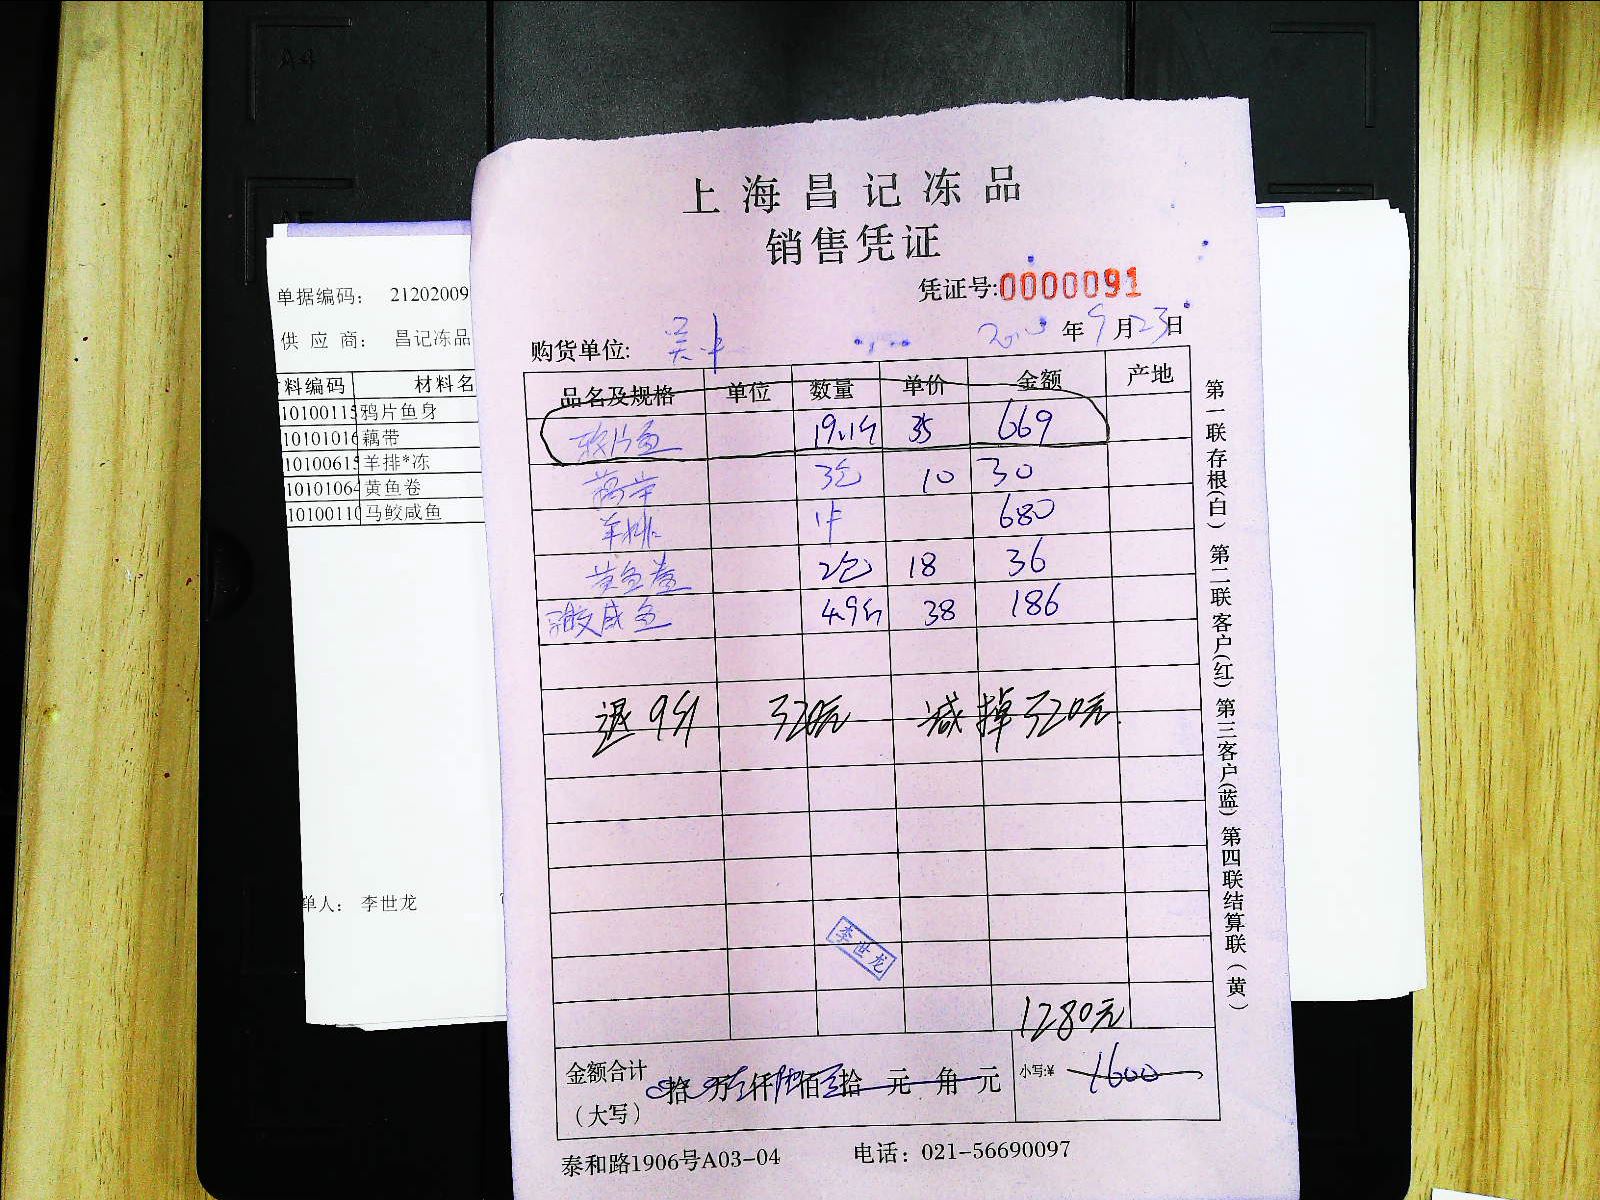 上海昌记冻品
销售凭证
凭证号:0000091
购货单位: 年9月23日
品名及规格 单位 数量 单价 金额 产地
鸦片鱼 19.1斤 35 669
藕带 3包 10 30
羊排 1件 680
黄鱼卷 2包 18 36
马鲛咸鱼 4.9斤 38 186
退9斤 320元 减掉320元
李世龙
1280元
金额合计
(大写)
拾 万 仟 佰 拾 元 角 元
小写:¥ 1600
泰和路1906号A03-04 电话: 021-56690097
第一联存根(白) 第二联客户(红) 第三客户(蓝) 第四联结算联(黄)
单据编码: 21202009
供应商: 昌记冻品
料编码 材料名
10100115 鸦片鱼身
10101016 藕带
10100615 羊排*冻
10101064 黄鱼卷
10100110 马鲛咸鱼
单人: 李世龙
A4